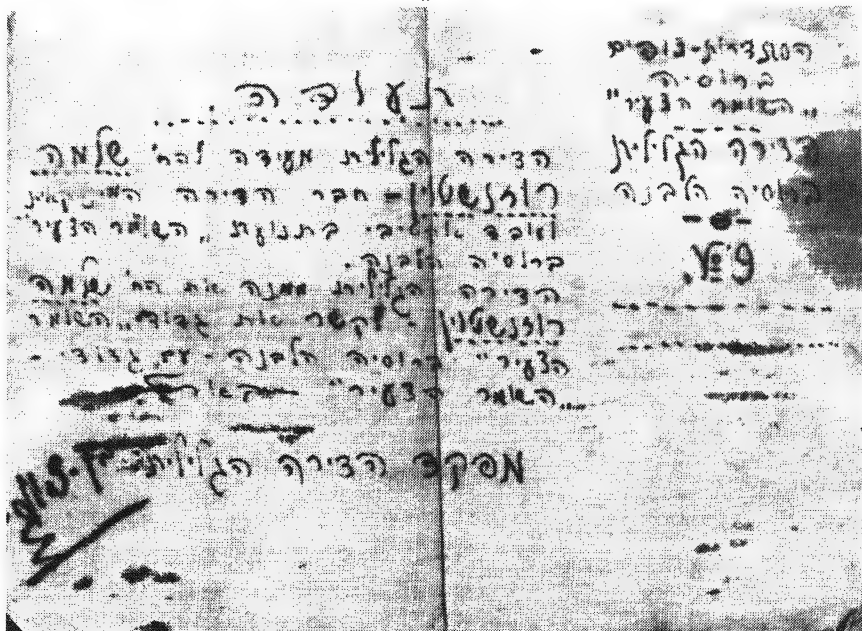 הסתדרות-צופים
ברוסיה
„השומר הצעיר"
הדירה הגלילית
ברוסיה הלבנה
תעודה
הדירה הגלילית מעידה להח' שלמה
רוזנשטין - חבר הדירה
ועובד בתנועת „השומר הצעיר"
ברוסיה הלבנה.
הדירה הגלילית ממנה את הח' שלמה
רוזנשטין - לקשר את גדודי „השומר
הצעיר" ברוסיה הלבנה - עם גדודי -
„השומר הצעיר"
מפקד הדירה הגלילית: